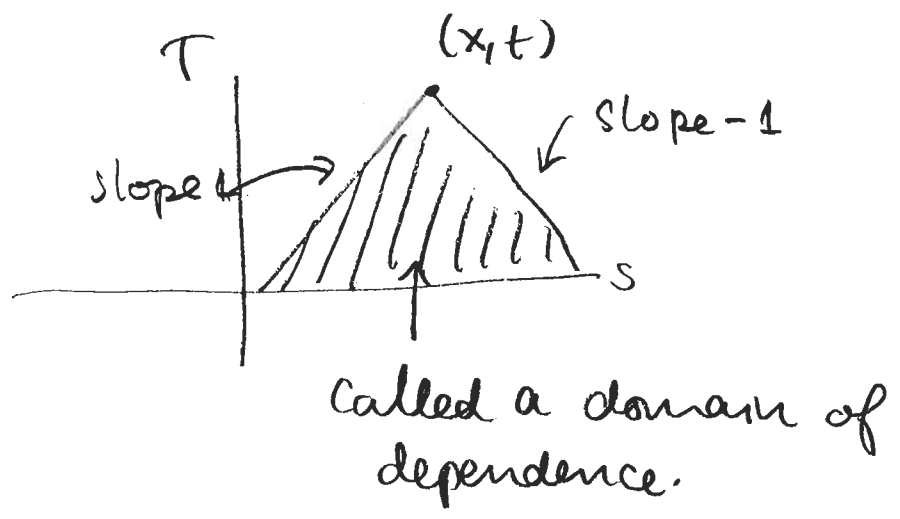 (x, t)
T
slope -1
slope 1
s
called a domain of
dependence.